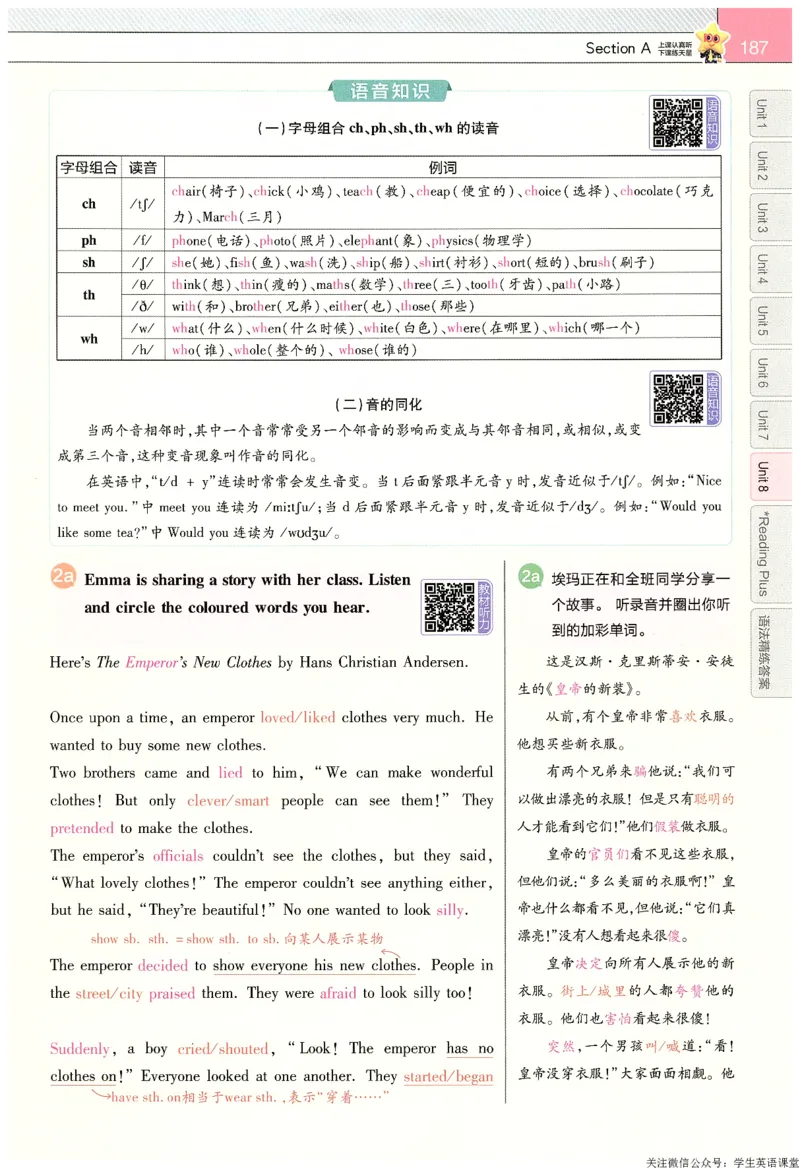 Section A 上课认真听
下课练天星
187
语音知识
语音知识
(一)字母组合 ch、ph、sh、th、wh 的读音
字母组合 读音 例词
ch /tʃ/ chair(椅子)、chick(小鸡)、teach(教)、cheap(便宜的)、choice(选择)、chocolate(巧克
力)、March(三月)
ph /f/ phone(电话)、photo(照片)、elephant(象)、physics(物理学)
sh /ʃ/ she(她)、fish(鱼)、wash(洗)、ship(船)、shirt(衬衫)、short(短的)、brush(刷子)
th /θ/ think(想)、thin(瘦的)、maths(数学)、three(三)、tooth(牙齿)、path(小路)
/ð/ with(和)、brother(兄弟)、either(也)、those(那些)
wh /w/ what(什么)、when(什么时候)、white(白色)、where(在哪里)、which(哪一个)
/h/ who(谁)、whole(整个的)、whose(谁的)
语音知识
(二)音的同化
当两个音相邻时,其中一个音常常受另一个邻音的影响而变成与其邻音相同,或相似,或变
成第三个音,这种变音现象叫作音的同化。
在英语中,“t/d + y”连读时常常会发生音变。当 t 后面紧跟半元音 y 时,发音近似于/tʃ/。例如:“Nice
to meet you.”中 meet you 连读为 /miːtʃu/;当 d 后面紧跟半元音 y 时,发音近似于/dʒ/。例如:“Would you
like some tea?”中 Would you 连读为 /wʊdʒu/。
2a Emma is sharing a story with her class. Listen
and circle the coloured words you hear.
教材听力
Here’s The Emperor’s New Clothes by Hans Christian Andersen.
Once upon a time, an emperor loved/liked clothes very much. He
wanted to buy some new clothes.
Two brothers came and lied to him, “We can make wonderful
clothes! But only clever/smart people can see them!” They
pretended to make the clothes.
The emperor’s officials couldn’t see the clothes, but they said,
“What lovely clothes!” The emperor couldn’t see anything either,
but he said, “They’re beautiful!” No one wanted to look silly.
show sb. sth. = show sth. to sb. 向某人展示某物
The emperor decided to show everyone his new clothes. People in
the street/city praised them. They were afraid to look silly too!
Suddenly, a boy cried/shouted, “Look! The emperor has no
clothes on!” Everyone looked at one another. They started/began
have sth. on相当于wear sth.,表示“穿着……”
2a 埃玛正在和全班同学分享一
个故事。 听录音并圈出你听
到的加彩单词。
这是汉斯·克里斯蒂安·安徒
生的《皇帝的新装》。
从前,有个皇帝非常喜欢衣服。
他想买些新衣服。
有两个兄弟来骗他说:“我们可
以做出漂亮的衣服! 但是只有聪明的
人才能看到它们!”他们假装做衣服。
皇帝的官员们看不见这些衣服,
但他们说:“多么美丽的衣服啊!” 皇
帝也什么都看不见,但他说:“它们真
漂亮!”没有人想看起来很傻。
皇帝决定向所有人展示他的新
衣服。街上/城里的人都夸赞他的
衣服。他们也害怕看起来很傻!
突然,一个男孩叫/喊道:“看!
皇帝没穿衣服!”大家面面相觑。他
Unit 1
Unit 2
Unit 3
Unit 4
Unit 5
Unit 6
Unit 7
Unit 8
*Reading Plus
语法精练答案
关注微信公众号:学生英语课堂